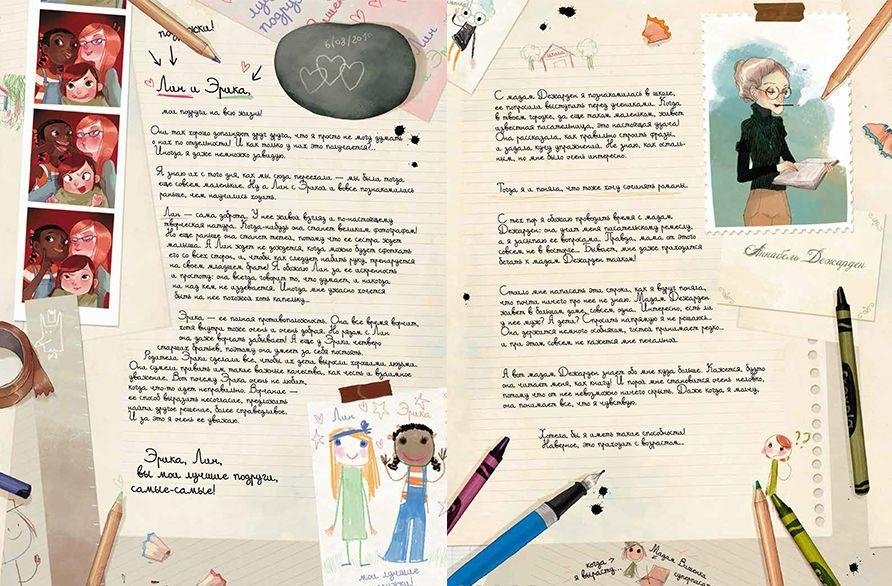 подружки!
Лин и Эрика,
мои подруги на всю жизнь!
Они так хорошо дополняют друг друга, что я просто не могу думать
о них по отдельности! И как только у них это получается?..
Иногда я даже немножко завидую.
Я знаю их с того дня, как мы сюда переехали — мы были тогда
еще совсем маленькие. Ну а Лин с Эрикой и вовсе познакомились
раньше, чем научились ходить.
Лин — сама доброта. У нее живой взгляд и по-настоящему
творческая натура. Когда-нибудь она станет великим фотографом!
Но еще раньше она станет тетей, потому что ее сестра ждет
малыша. А Лин ждет не дождется, когда можно будет сфоткать
его со всех сторон, и, чтобы как следует набить руку, тренируется
на своем младшем брате! Я обожаю Лин за ее искренность
и простоту: она всегда говорит то, что думает, и никогда
ни над кем не издевается. Иногда мне ужасно хочется
быть на нее похожей хоть капельку...
Эрика — ее полная противоположность. Она все время ворчит,
хотя внутри тоже очень и очень добрая. Но рядом с Лин
она даже ворчать забывает! А еще у Эрики четверо
старших братьев, поэтому она умеет за себя постоять.
Родители Эрики сделали все, чтобы их дети выросли хорошими людьми.
Они сумели привить им такие важные качества, как честь и взаимное
уважение. Вот почему Эрика очень не любит,
когда что-то идет неправильно. Ворчание —
ее способ выразить несогласие, предложить
найти другое решение, более справедливое.
И за это я очень ее уважаю.
Эрика, Лин,
вы мои лучшие подруги,
самые-самые!
6/03/2010
Лин
Лин Эрика
мои лучшие
С мадам Дежарден я познакомилась в школе,
ее попросили выступить перед учениками. Когда
в твоем городке, да еще таком маленьком, живет
известная писательница, это настоящая удача!
Она рассказала, как правильно строить фразы,
и задала кучу упражнений. Не знаю, как осталь-
ным, но мне было очень интересно.
Тогда я и поняла, что тоже хочу сочинять романы.
С тех пор я обожаю проводить время с мадам
Дежарден: она учит меня писательскому ремеслу,
а я засыпаю ее вопросами. Правда, мама от этого
совсем не в восторге... Бывает, мне даже приходится
бегать к мадам Дежарден тайком!
Стоило мне написать эти строки, как я вдруг поняла,
что почти ничего про нее не знаю. Мадам Дежарден
живет в большом доме, совсем одна. Интересно, есть ли
у нее муж? А дети? Спросить напрямую я не решаюсь...
Она держится немного особняком, гостей принимает редко...
и при этом совсем не кажется мне печальной.
А вот мадам Дежарден знает обо мне куда больше. Кажется, будто
она читает меня, как книгу! И порой мне становится очень неловко,
потому что от нее невозможно ничего скрыть. Даже когда я молчу,
она понимает все, что я чувствую.
Хотела бы я иметь такие способности!
Наверное, это приходит с возрастом...
школа
Аннабель Дежарден
??
когда
я вырасту...
Мадам Вишенка